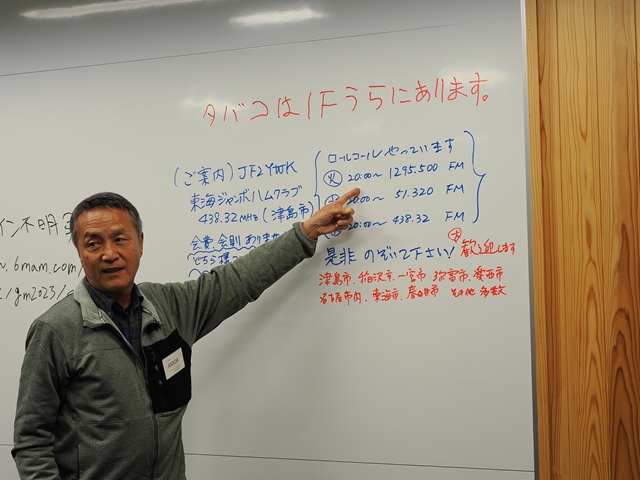 タバコは1Fうらにあります。
(ご案内) JF2YWK
東海ジャンボハムクラブ
438.32MHz (津島市)
会費、会則 ありませ
どちら様
ロールコール やっています
火 20:00〜 1295.500 FM
20:00〜 51.320 FM
20:00〜 438.32 FM
是非 のぞいて下さい! 大歓迎します
津島市、稲沢市、一宮市、弥富市、愛西市
名古屋市内、東海市、春日井市 その他 多数
イン不明
w.6mam.com/
/gm2023/